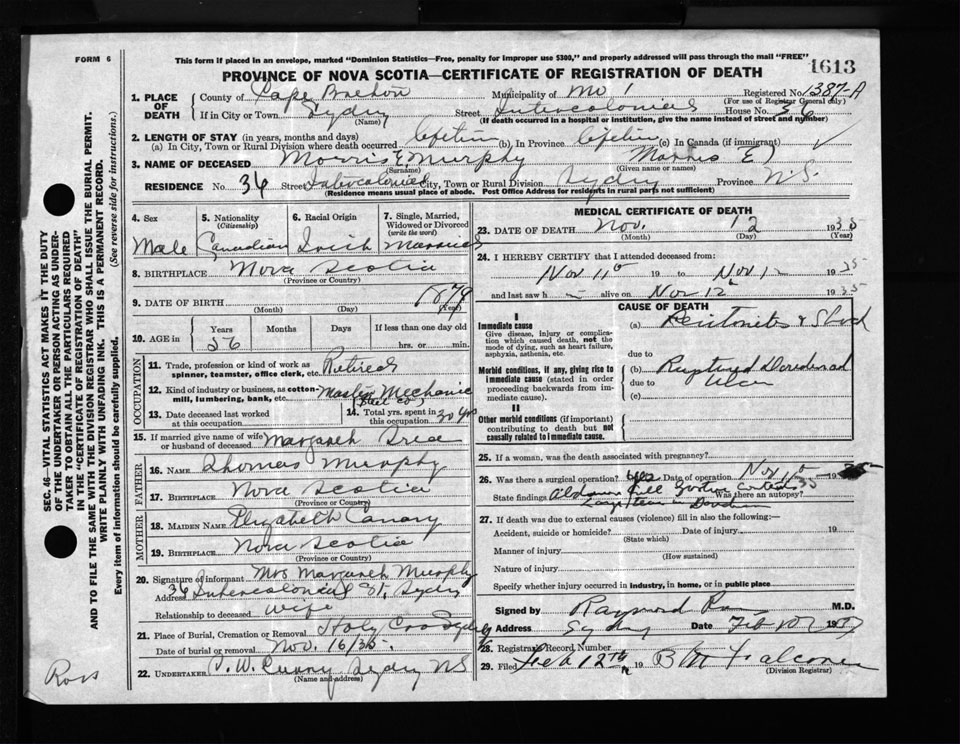 FORM 6
This form if placed in an envelope, marked "Dominion Statistics—Free, penalty for improper use $300," and properly addressed will pass through the mail "FREE"
1613
PROVINCE OF NOVA SCOTIA—CERTIFICATE OF REGISTRATION OF DEATH
1. PLACE OF DEATH County of Cape Breton Municipality of No 1 Registered No. 1387-A
(For use of Registrar General only)
If in City or Town Sydney (Name) Street Intercolonial House No. 36
(If death occurred in a hospital or institution, give the name instead of street and number)
2. LENGTH OF STAY (in years, months and days)
(a) In City, Town or Rural Division where death occurred lifetime (b) In Province lifetime (c) In Canada (if immigrant)
3. NAME OF DECEASED Morris E. Murphy (Surname) Morris E (Given name or names)
RESIDENCE No. 36 Street Intercolonial City, Town or Rural Division Sydney Province N.S.
(Residence means usual place of abode. Post Office Address for residents in rural parts not sufficient)
4. Sex Male
5. Nationality (Citizenship) Canadian
6. Racial Origin Irish
7. Single, Married, Widowed or Divorced (write the word) Married
8. BIRTHPLACE Nova Scotia
(Province or Country)
9. DATE OF BIRTH 1879
(Month) (Day) (Year)
10. AGE in Years Months Days If less than one day
56 hrs. or min.
OCCUPATION
11. Trade, profession or kind of work as spinner, teamster, office clerk, etc. Retired
12. Kind of industry or business, as cotton-mill, lumbering, bank, etc. Master Mechanic
(Steel Co)
13. Date deceased last worked at this occupation
14. Total yrs. spent in this occupation 30 yrs
15. If married give name of wife or husband of deceased Margaret
FATHER
16. NAME Thomas Murphy
17. BIRTHPLACE Nova Scotia
(Province or Country)
MOTHER
18. MAIDEN NAME Elizabeth Canary
19. BIRTHPLACE Nova Scotia
(Province or Country)
20. Signature of informant Mrs Margaret Murphy
Address 36 Intercolonial St. Sydney
Relationship to deceased wife
21. Place of Burial, Cremation or Removal Holy Cross Sydney
Date of burial or removal Nov. 16/35.
22. UNDERTAKER Sydney NS
(Name and address)
MEDICAL CERTIFICATE OF DEATH
23. DATE OF DEATH Nov. 12 1935
(Month) (Day) (Year)
24. I HEREBY CERTIFY that I attended deceased from:
Nov 11th 19 to Nov 1 1935
and last saw h alive on Nov 12th 1935
CAUSE OF DEATH
I
Immediate cause
Give disease, injury or complication which caused death, not the mode of dying, such as heart failure, asphyxia, asthenia, etc.
(a) Peritonitis & Shock
due to
Morbid conditions, if any, giving rise to immediate cause (stated in order proceeding backwards from immediate cause).
(b) Ruptured Duodenal
due to Ulcer
(c)
II
Other morbid conditions (if important) contributing to death but not causally related to immediate cause.
25. If a woman, was the death associated with pregnancy?
26. Was there a surgical operation? yes Date of operation Nov 11th 1935
State findings Was there an autopsy?
27. If death was due to external causes (violence) fill in also the following:—
Accident, suicide or homicide? Date of injury 19
(State which)
Manner of injury
(How sustained)
Nature of injury
Specify whether injury occurred in industry, in home, or in public place
Signed by Raymond M.D.
Address Sydney Date Feb 10 1937
28. Registrar's Record Number
29. Filed Feb 12th 19 Falconer
(Division Registrar)
SEC. 46—VITAL STATISTICS ACT MAKES IT THE DUTY
OF THE UNDERTAKER OR PERSON ACTING AS UNDER-
TAKER TO OBTAIN ALL THE PARTICULARS REQUIRED
IN THE "CERTIFICATE OF REGISTRATION OF DEATH"
AND TO FILE THE SAME WITH THE DIVISION REGISTRAR WHO SHALL ISSUE THE BURIAL PERMIT.
WRITE PLAINLY WITH UNFADING INK. THIS IS A PERMANENT RECORD.
Every item of information should be carefully supplied. (See reverse side for instructions.)
Ross